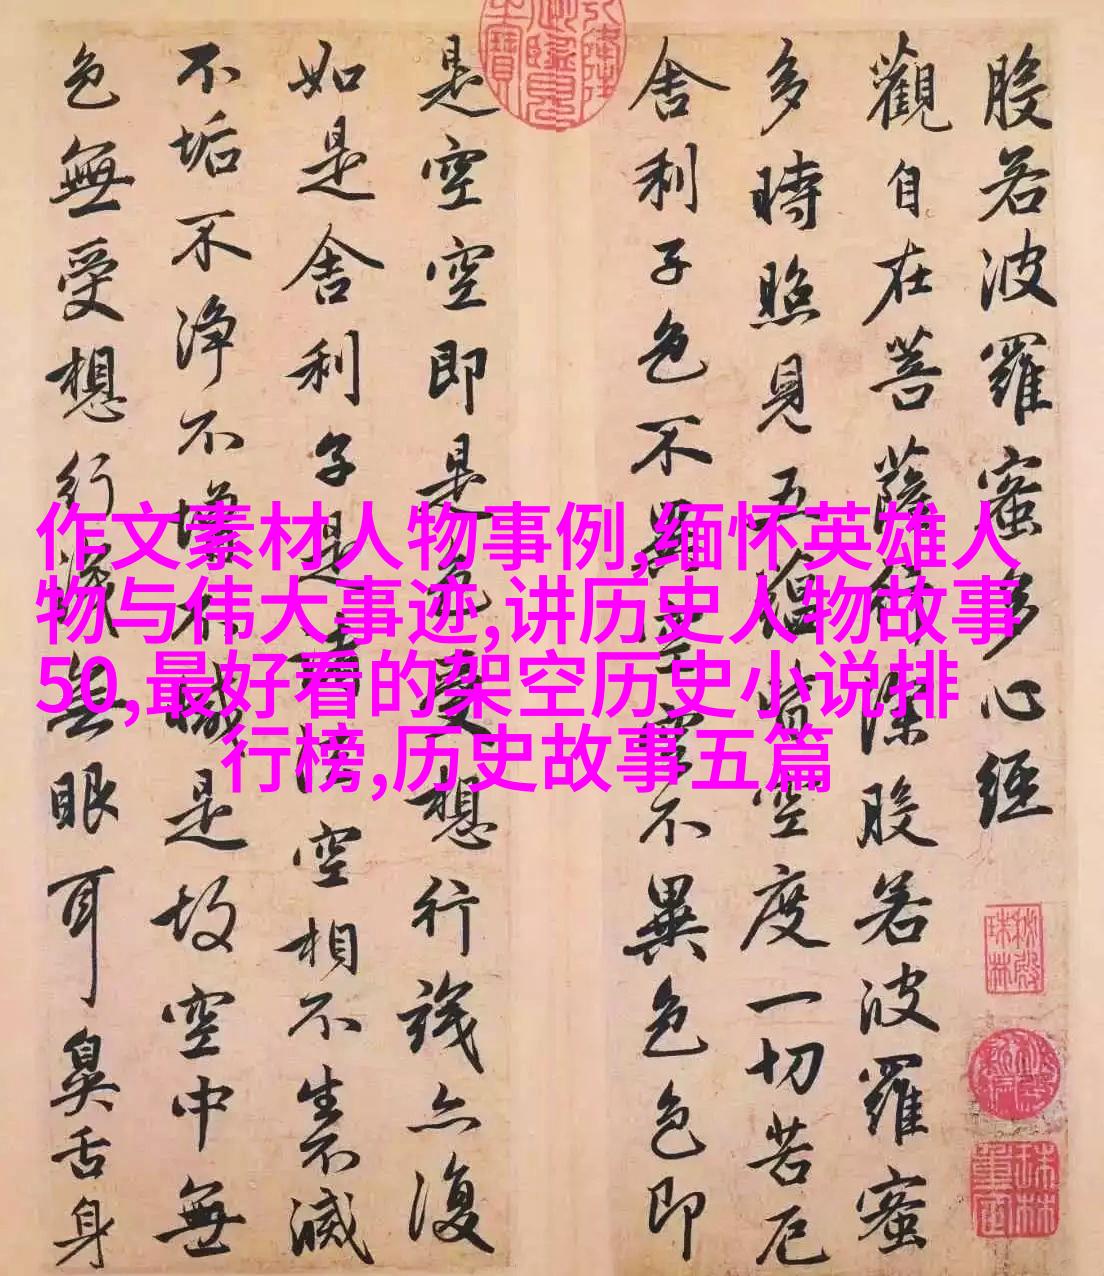 般若波羅蜜多心經
觀自在菩薩行深般若波羅蜜
多時照見五蘊皆空度一切苦厄
舍利子色不異空空不異色色即
是空空即是色受想行識亦復
如是舍利子是諸法空相不生不滅
不垢不淨不增不減是故空中無
色無受想行識無眼耳鼻舌身
秘殿珠林
珠林重定
作文素材人物事例,缅怀英雄人
物与伟大事迹,讲历史人物故事
50,最好看的架空历史小说排
行榜,历史故事五篇